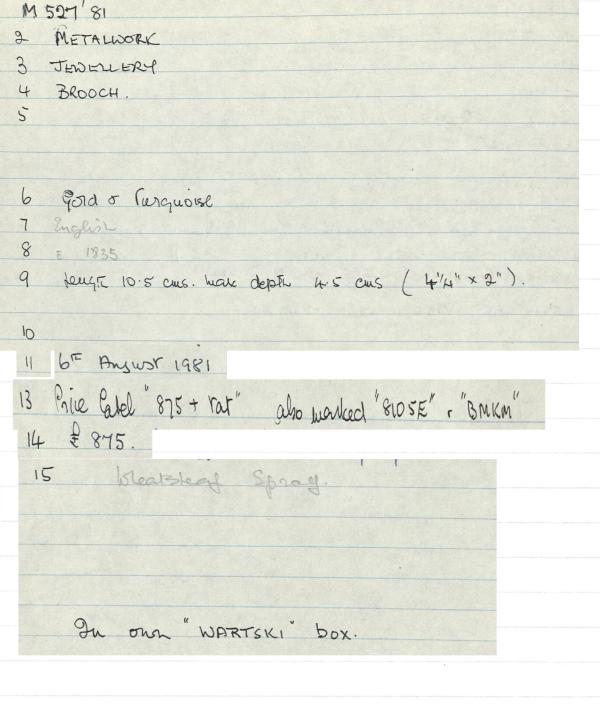 M 527 '81
2 METALWORK
3 JEWELLERY
4 BROOCH.
5
6 Gold & Turquoise
7 English
8 E 1835
9 Length 10.5 cms. max depth 4.5 cms ( 4¼" × 2" ).
10
11 6th August 1981
13 Price label "875 + vat" also marked "8105E" + "BMKM"
14 £ 875.
15 Wheatsheaf Spray.
In own "WARTSKI" box.